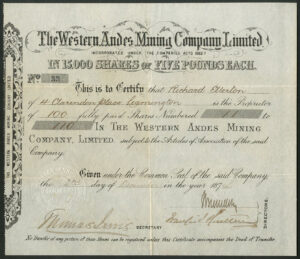 The Western Andes Mining Company, Limited
INCORPORATED UNDER THE COMPANIES ACTS 1862
IN 15,000 SHARES OF FIVE POUNDS EACH.
No. 33
This is to Certify that Richard Elverton
of Clarendon place Leamington is the Proprietor
of 100 fully paid Shares Numbered 11 to
110 IN THE WESTERN ANDES MINING
COMPANY, LIMITED subject to the Articles of Association of the said
Company.
Given under the Common Seal of the said Company,
the day of in the year 187
SECRETARY
DIRECTORS.
No Transfer of any portion of these Shares can be registered unless this Certificate accompanies the Deed of Transfer
THE WESTERN ANDES MINING COMPANY LIMITED